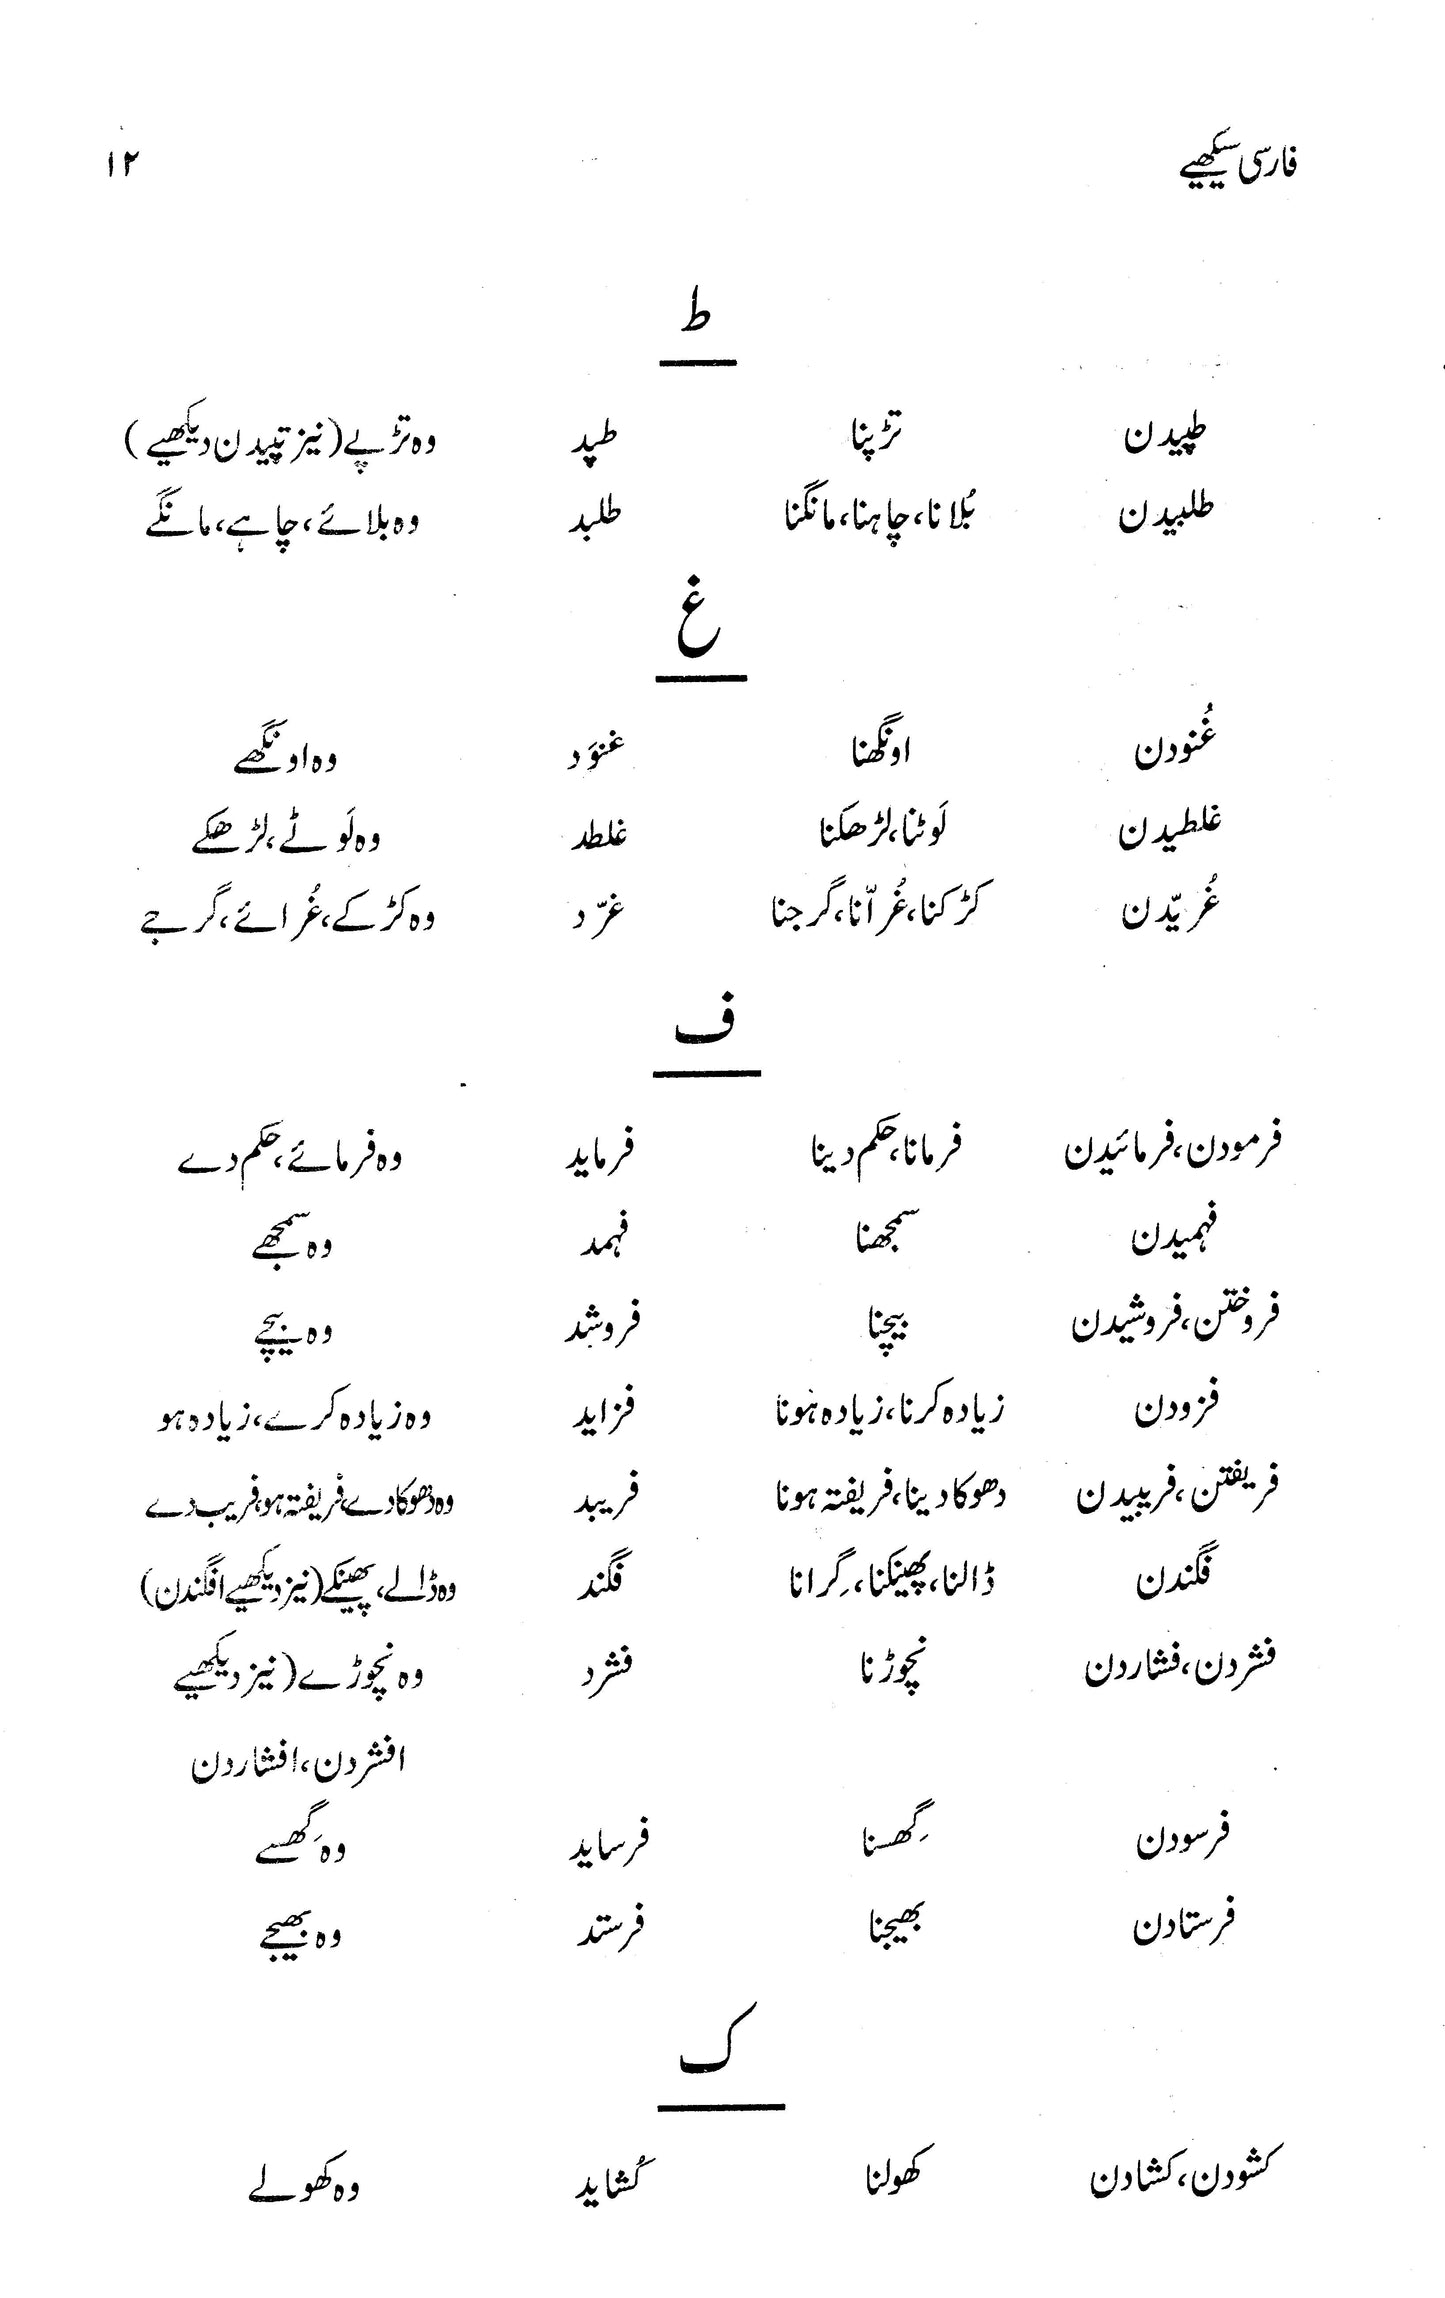 فارسی سیکھیے ۱۲
ط
طپیدن تڑپنا طپد وہ تڑپے (نیز تپیدن دیکھیے)
طلبیدن بُلانا، چاہنا، مانگنا طلبد وہ بلائے، چاہے، مانگے
غ
غُنودن اونگھنا غنوَد وہ اونگھے
غلطیدن لَوٹنا، لڑھکنا غلطد وہ لَوٹے، لڑھکے
غُریّدن کڑکنا، غُرّانا، گرجنا غرّد وہ کڑکے، غُرائے، گرجے
ف
فرمودن، فرمائیدن فرمانا، حکم دینا فرماید وہ فرمائے، حکم دے
فہمیدن سمجھنا فہمد وہ سمجھے
فروختن، فروشیدن بیچنا فروشد وہ بیچے
فزودن زیادہ کرنا، زیادہ ہونا فزاید وہ زیادہ کرے، زیادہ ہو
فریفتن، فریبیدن دھوکا دینا، فریفتہ ہونا فریبد وہ دھوکا دے، فریفتہ ہو، فریب دے
فگندن ڈالنا، پھینکنا، گِرانا فگند وہ ڈالے، پھینکے (نیز دیکھیے افگندن)
فشردن، فشاردن نچوڑنا فشرد وہ نچوڑے (نیز دیکھیے
افشردن، افشاردن
فرسودن گِھسنا فرساید وہ گِھسے
فرستادن بھیجنا فرستد وہ بھیجے
ک
کشودن، کشادن کھولنا کُشاید وہ کھولے